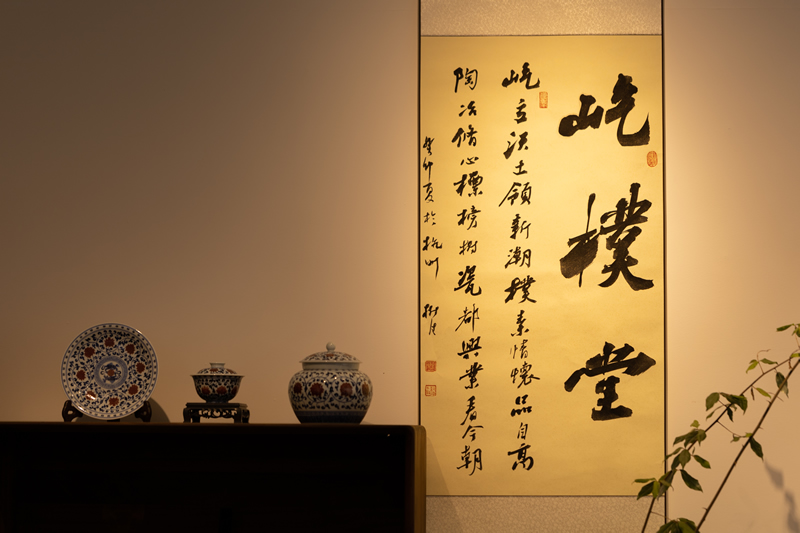 屹樸堂
屹立沃土領新潮樸素情懷品自高
陶冶脩心標榜樹瓷都興業看今朝
癸卯夏於杭州